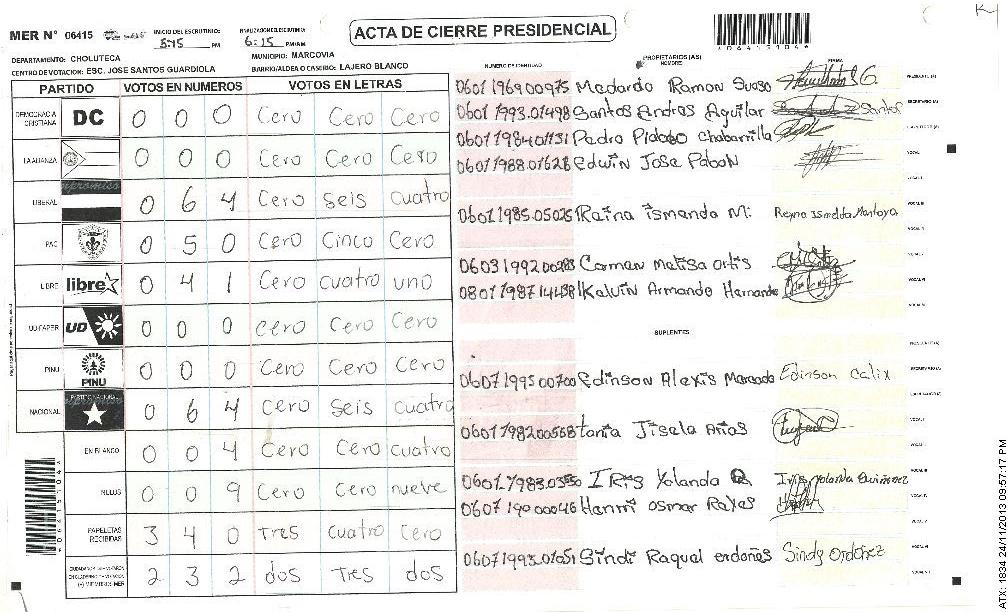 MER N° 06415
INICIO DEL ESCRUTINIO:
5:15 PM
FINALIZACION EL ESCRUTINIO:
6:15 PM/AM
ACTA DE CIERRE PRESIDENCIAL
DEPARTAMENTO: CHOLUTECA
MUNICIPIO: MARCOVIA
CENTRO DE VOTACION: ESC. JOSE SANTOS GUARDIOLA
BARRIO/ALDEA O CASERIO: LAJERO BLANCO
PARTIDO VOTOS EN NUMEROS VOTOS EN LETRAS
DEMOCRACIA CRISTIANA DC 0 0 0 Cero Cero Cero
LA ALIANZA 0 0 0 Cero Cero Cero
LIBERAL 0 6 4 Cero seis cuatro
PAC 0 5 0 Cero Cinco Cero
LIBRE libre 0 4 1 Cero cuatro uno
UD-FAPER UD 0 0 0 Cero Cero Cero
PINU PINU 0 0 0 Cero Cero Cero
NACIONAL 0 6 4 Cero seis cuatro
EN BLANCO 0 0 4 Cero Cero cuatro
NULOS 0 0 9 Cero Cero nueve
PAPELETAS RECIBIDAS 3 4 0 Tres cuatro Cero
2 3 2 dos Tres dos
NUMERO DE IDENTIDAD
PROPIETARIOS (AS)
NOMBRE
FIRMA
0601196900975 Medardo Ramon Suoso
PRESIDENTE (A)
0601 1993.01498 Santos Andres Aguilar Santos
SECRETARIO (A)
0601198401131 Pedro Chabarrilla
0601 1988.01628 Edwin Jose Pabon
0601.1985.05025 Raina ismenda M. Reyna Ismelda Montoya
Carmen Melisa Ortis
0801198714438 Kelvin Armando Hernande
SUPLENTES
0607199500700 Edinson Alexis Mercado Edinson Calix
0601198200568 tania Jisela Arias
IRis Yolanda Q Iris Yolanda Quiñonez
Henrri osmar Reyes
0607 1993.01051 Sindi Raquel ordoñes Sindy Ordoñez
*064151044*
ATX: 1834 24/11/2013 09:57:17 PM